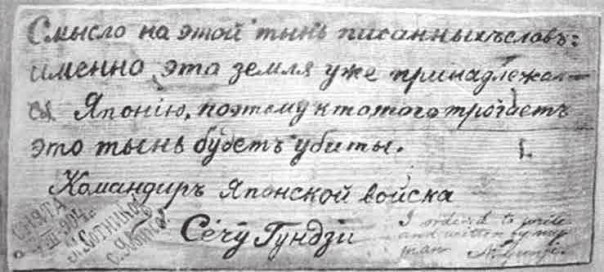 Смысло на этой тынь писанныхъ словъ:
именно эта земля уже принадлежал-
са Японію, поэтому кто этого трогаетъ
это тынь будетъ убиты.
Командиръ Японской войска
Сечу Гундзи
СНЯТА
I ordered to write
and written by my
man